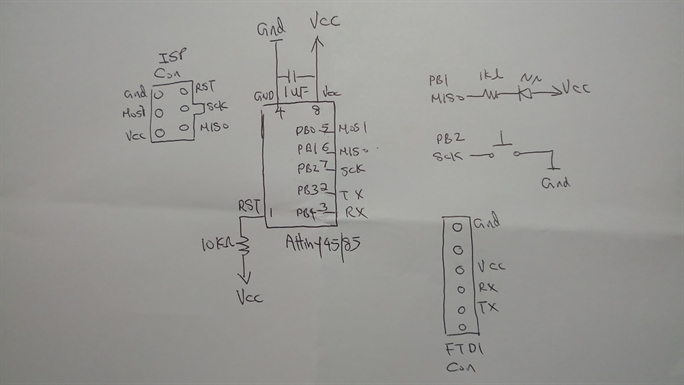 Gnd
Vcc
ISP
Con
Gnd RST
Mosi SCK
Vcc MISO
1UF
GND Vcc
4 8
PB0 5 Mosi
PB1 6 MISO
PB2 7 SCK
PB3 2 TX
PB4 3 RX
RST 1
10KΩ
Vcc
Attiny45/85
PB1 1KΩ
MISO Vcc
PB2
SCK
Gnd
Gnd
Vcc
RX
TX
FTDI
Con